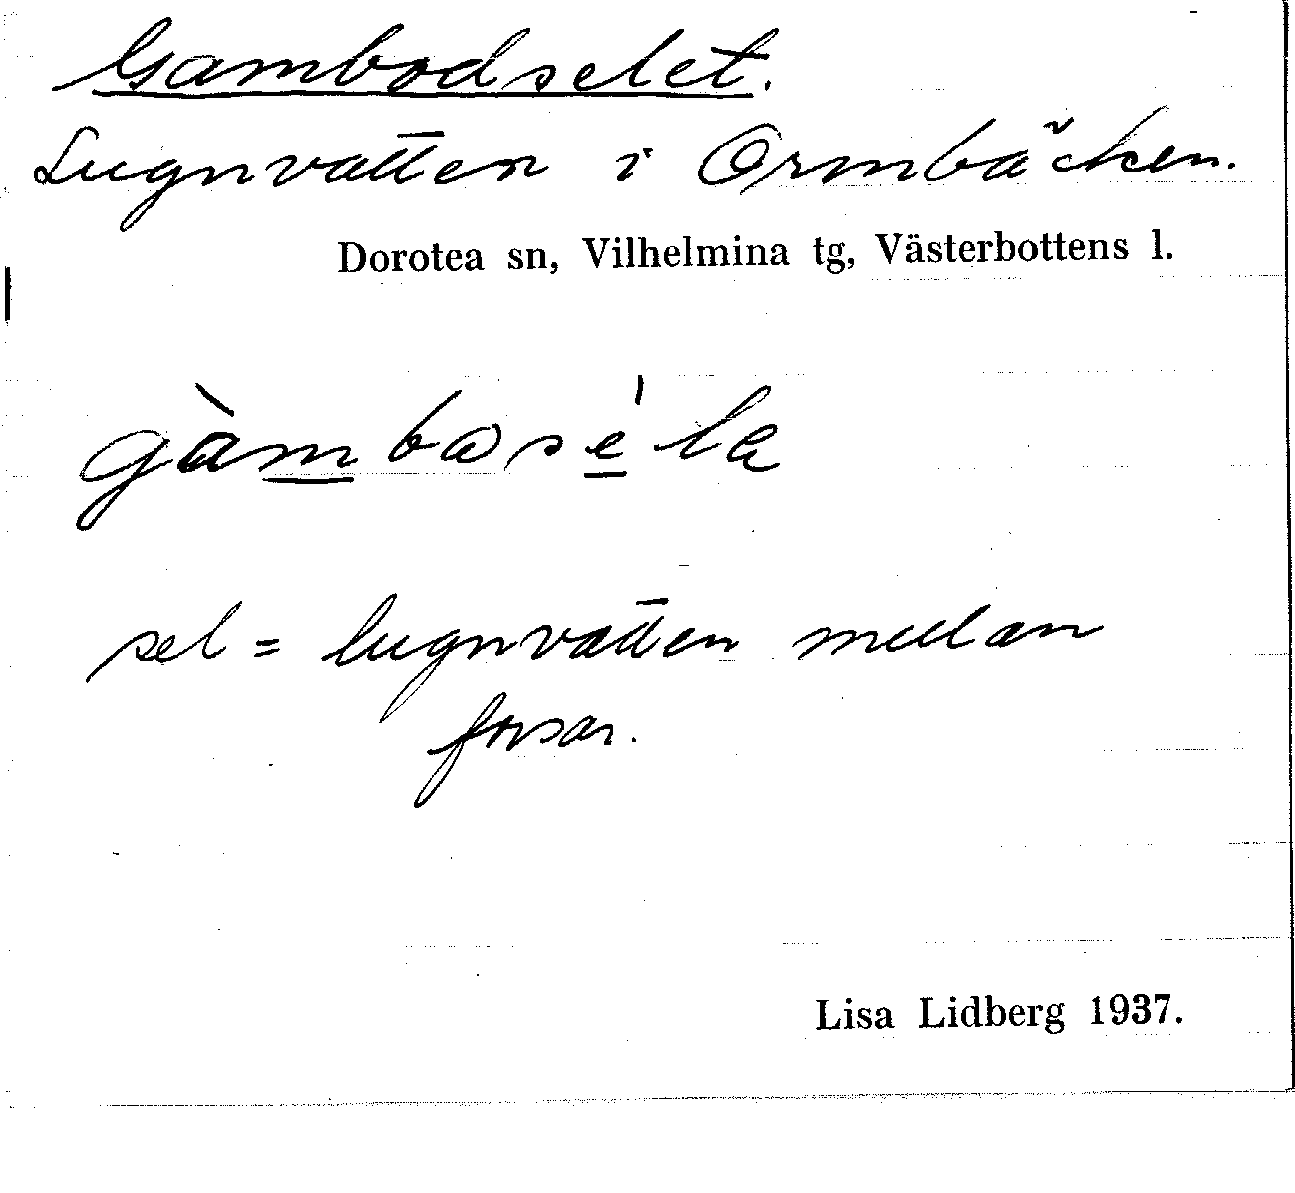 Gambodselet.
Lugnvatten i Ormbäcken.
Dorotea sn, Vilhelmina tg, Västerbottens l.
gàmbasé'la
sel = lugnvatten mellan
forsar.
Lisa Lidberg 1937.